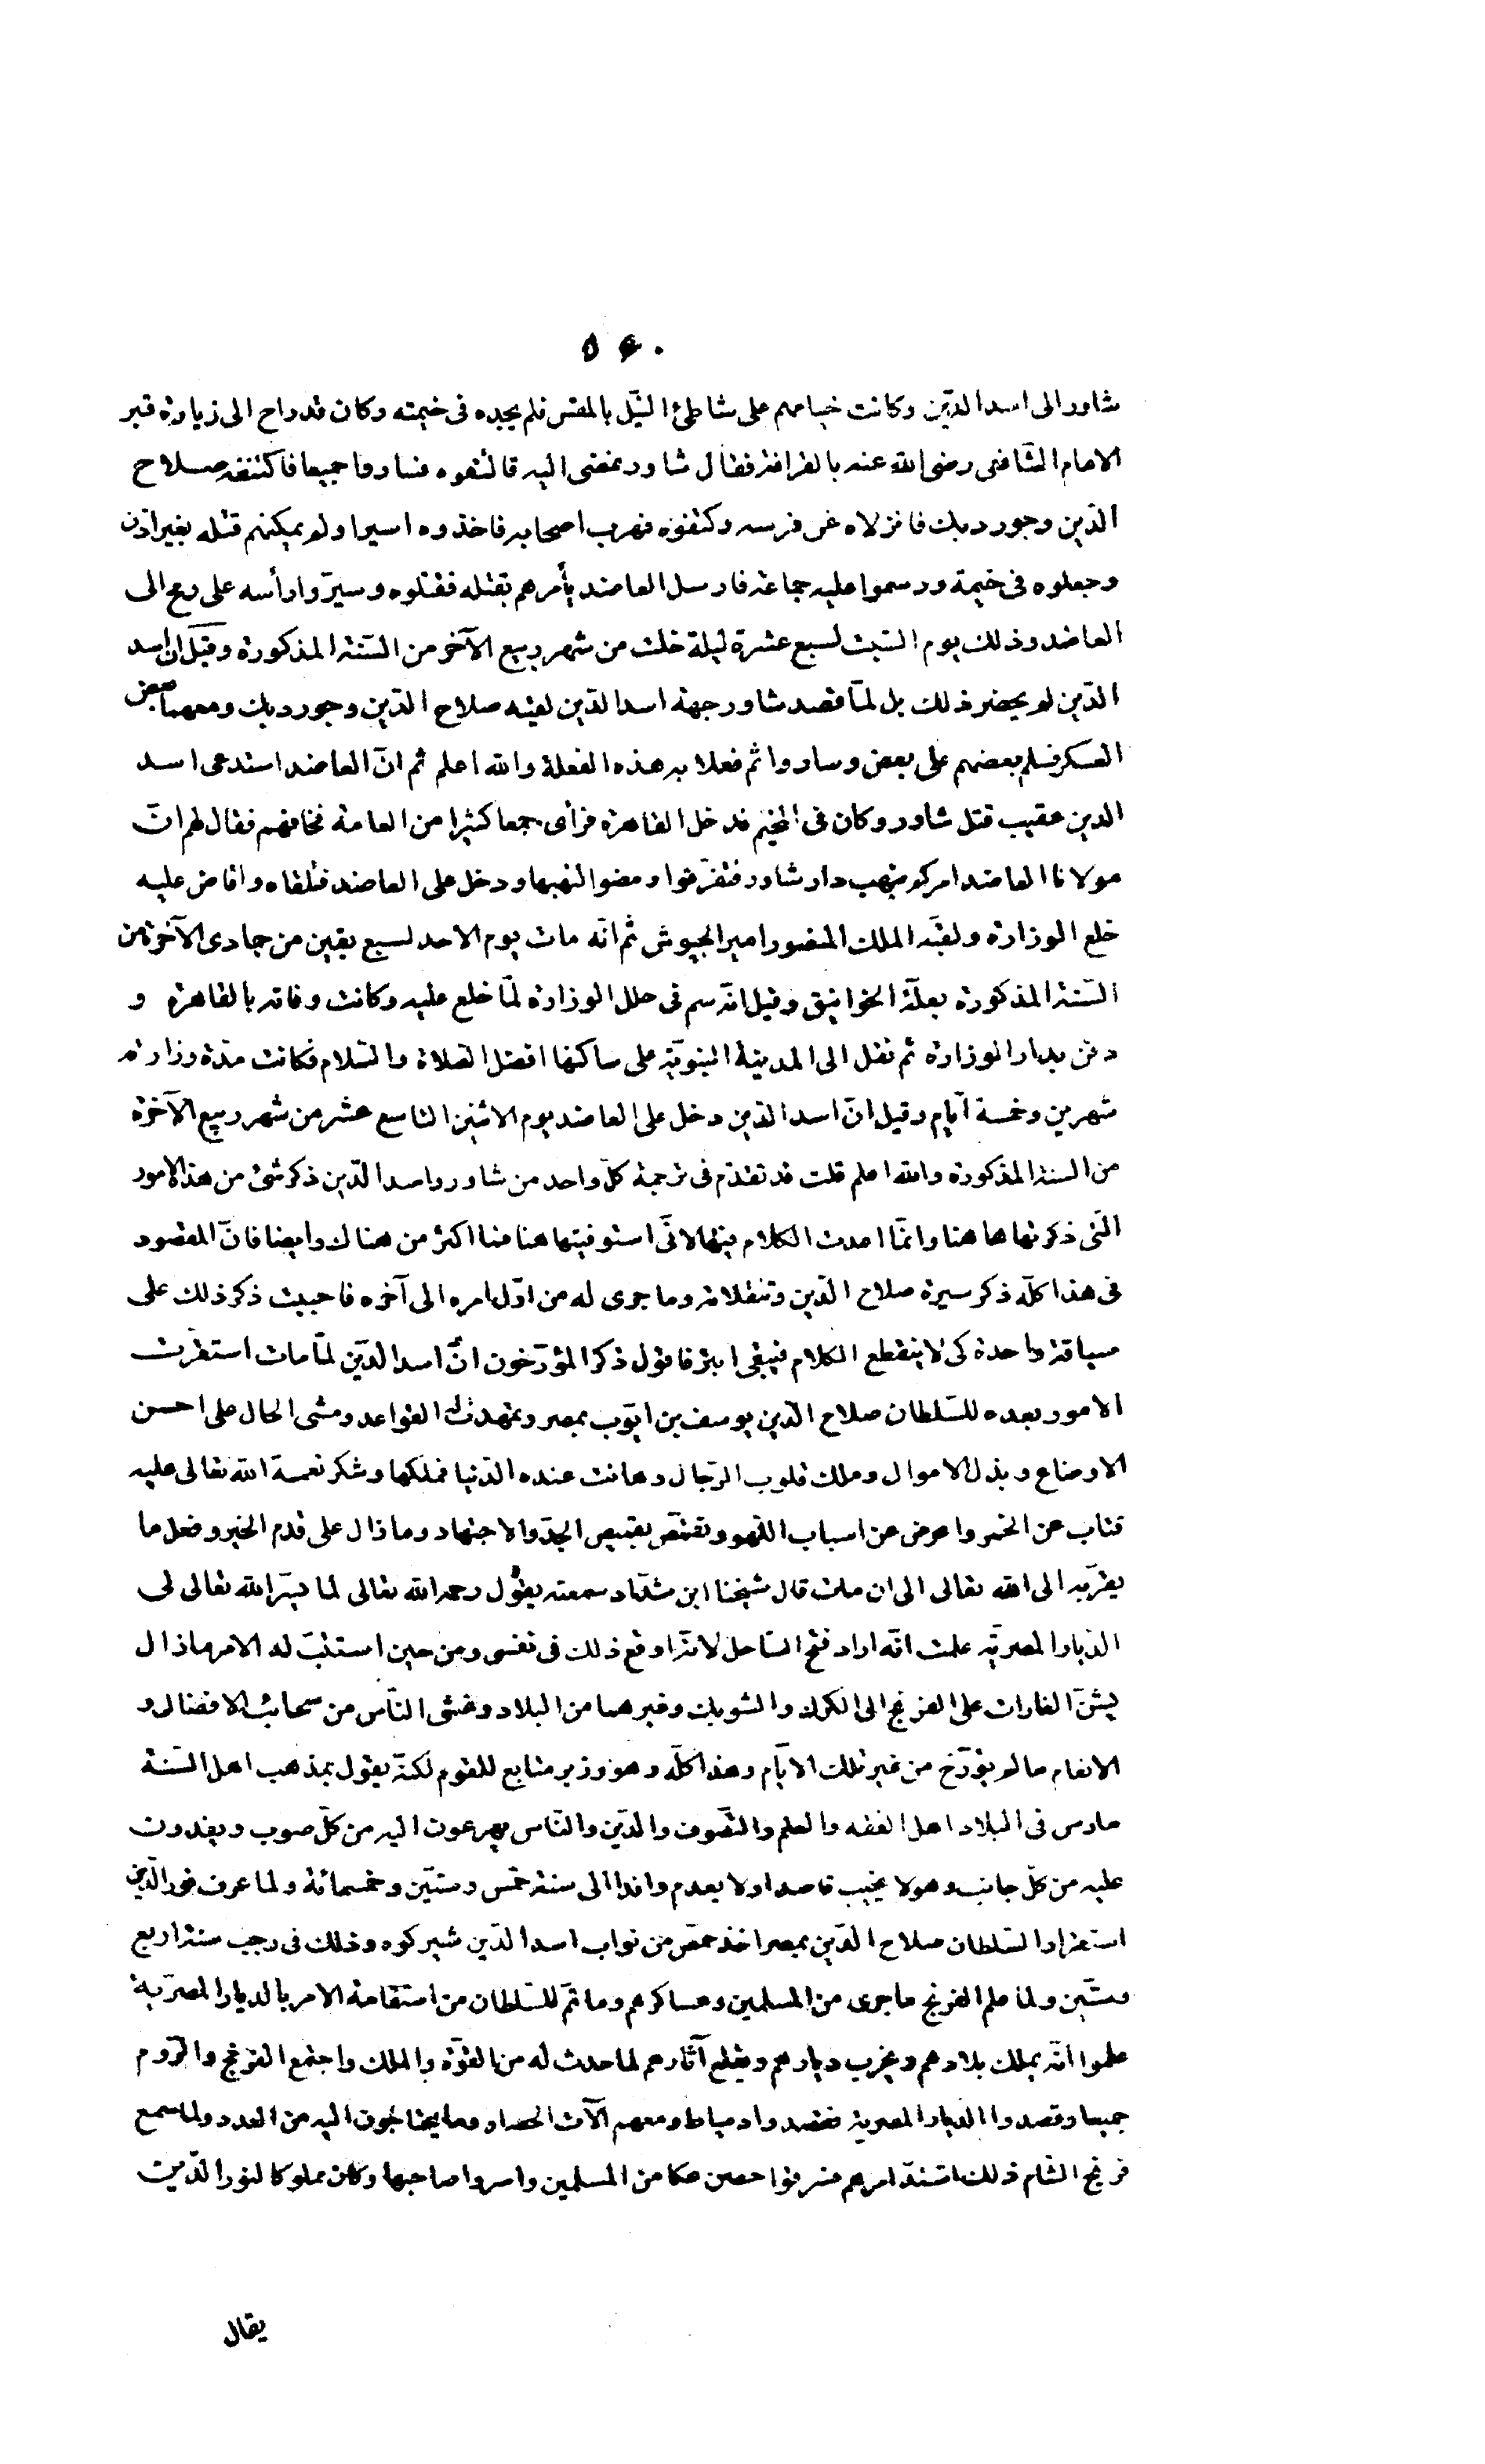 ٥٤٠
شاور الى اسد الدّين وكانت خيامهم على شاطئ النّيل بالمقس فلم يجده فى خيمته وكان قد راح الى زيارة قبر
الامام الشّافعى رضى الله عنه بالقرافة فقال شاور نمضى اليه فالتقوه فساروا جميعا فاكتنفه صلاح
الدّين وجورديك فانزلاه عن فرسه وكتفوه فهرب اصحابه فاخذوه اسيرا ولم يمكنهم قتله بغير اذن
وجعلوه فى خيمة ورسموا عليه جماعة فارسل العاضد يأمرهم بقتله فقتلوه وسيّروا رأسه على رمح الى
العاضد وذلك يوم السّبت لسبع عشرة ليلة خلت من شهر ربيع الآخر من السّنة المذكورة وقيل ان اسد
الدّين لم يحضر ذلك بل لمّا قصد شاور جهة اسد الدّين لقيه صلاح الدّين وجورديك ومعهما بعض
العسكر فسلم بعضهم على بعض وساروا ثم فعلا به هذه الفعلة والله اعلم ثم انّ العاضد استدعى اسد
الدين عقيب قتل شاور وكان فى المخيّم فدخل القاهرة فرأى جمعا كثيرا من العامة فخافهم فقال لهم انّ
مولانا العاضد امركم بنهب دار شاور فتفرّقوا ومضوا لنهبها ودخل على العاضد فتلقاه وافاض عليه
خلع الوزارة ولقّبه الملك المنصور امير الجيوش ثم انّه مات يوم الاحد لسبع بقين من جمادى الآخرة من
السّنة المذكورة بعلّة الخوانيق وقيل انّه سم فى حلل الوزارة لمّا خلع عليه وكانت وفاته بالقاهرة و
دفن بدار الوزارة ثم نقل الى المدينة النبويّة على ساكنها افضل الصّلاة والسّلام فكانت مدّة وزارته
شهرين وخمسة ايّام وقيل انّ اسد الدّين دخل على العاضد يوم الاثنين التاسع عشر من شهر ربيع الآخرة
من السنة المذكورة والله اعلم قلت قد تقدّم فى ترجمة كلّ واحد من شاور واسد الدّين ذكر شئ من هذ الامور
الّتى ذكرتها هاهنا وانّما اعدت الكلام فيها لانّى استوفيتها هنا اكثر من هناك وايضا فانّ المقصود
فى هذا كلّه ذكر سيرة صلاح الدّين وتنقلاته وما جرى له من اوّل امره الى آخره فاحببت ذكر ذلك على
سياقة واحدة كى لا ينقطع الكلام فيبقى ابتر فاقول ذكر المؤرّخون انّ اسد الدّين لمّا مات استقرت
الامور بعده للسّلطان صلاح الدّين يوسف بن ايّوب بمصر وتمهدت له القواعد ومشى الحال على احسن
الاوضاع وبذل الاموال وملك قلوب الرّجال وهانت عنده الدّنيا فملكها وشكر نعمة الله تعالى عليه
فتاب عن الخمر واعرض عن اسباب اللّهو وتقمّص بقميص الجدّ والاجتهاد وما زال على قدم الخير وفعل ما
يقرّبه الى الله تعالى الى ان مات قال شيخنا ابن شدّاد سمعته يقول رحمه الله تعالى لما يسّر الله تعالى لى
الدّيار المصريّه علمت انّه اراد فتح السّاحل لانّه اوقع ذلك فى نفسى ومن حين استتبّ له الامر ما زال
يشنّ الغارات على الفرنج الى الكرك والشوبك وغيرهما من البلاد وغشى النّاس من سحائب الافضال و
الانعام ما لم يؤرّخ من غير تلك الايّام وهذا كلّه وهو وزير متابع للقوم لكنّه يقول بمذهب اهل السّنة
مارس فى البلاد اهل الفقه والعلم والتّصوف والدّين والنّاس يهرعون اليه من كلّ صوب ويفدون
عليه من كلّ جانب وهو لا يخيب قاصدا ولا يعدم وافدا الى سنة خمس وستّين وخمسمائة ولما عرف نور الدّين
استقرار السّلطان صلاح الدّين بمصر اخذ حمص من نواب اسد الدّين شيركوه وذلك فى رجب سنة اربع
وستّين ولمّا علم الفرنج ما جرى من المسلمين وعساكرهم وما تمّ للسّلطان من استقامة الامر بالديار المصريّة
علموا انّه يملك بلادهم ويخرب ديارهم ويقلع آثارهم لما حدث له من القوّة والملك واجتمع الفرنج والرّوم
جميعا وقصدوا الديار المصرية فقصدوا دمياط ومعهم آلات الحصار وما يحتاجون اليه من العدد ولما سمع
فرنج الشّام ذلك اشتدّ امرهم فسرقوا حصن عكا من المسلمين واسروا صاحبها وكان مملوكا لنور الدّين
يقال